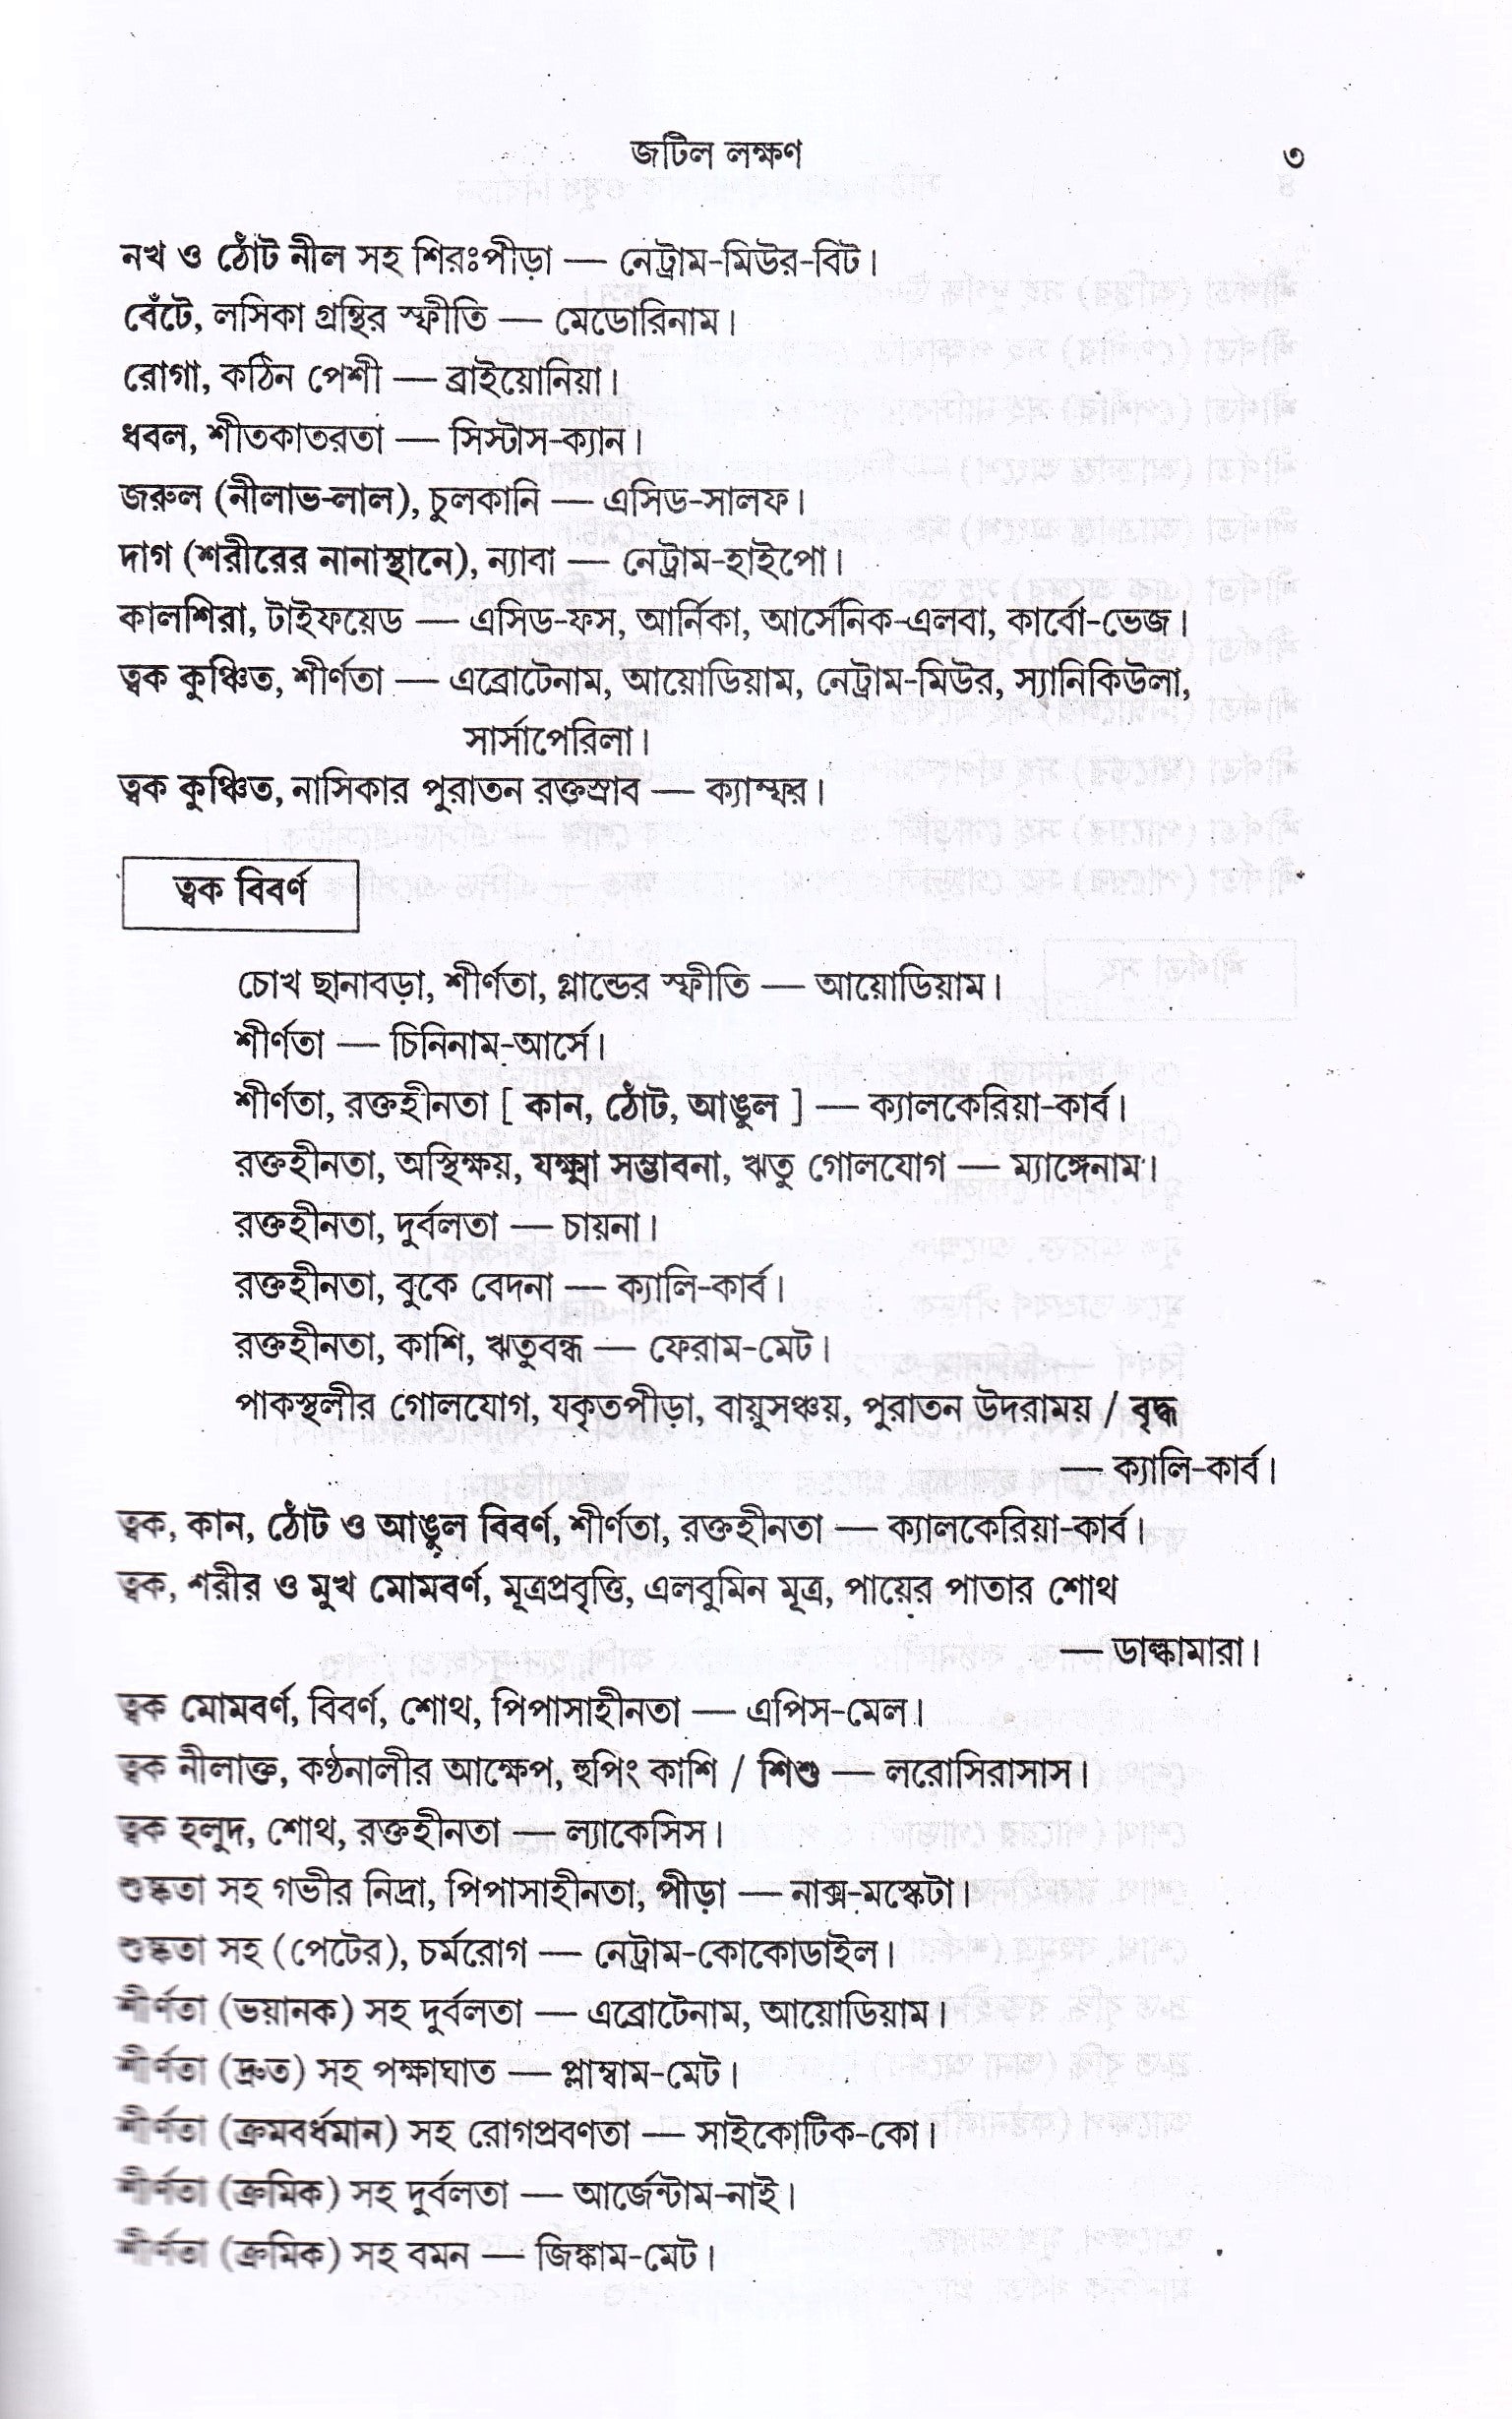 জটিল লক্ষণ ৩
নখ ও ঠোঁট নীল সহ শিরঃপীড়া — নেট্রাম-মিউর-বিট।
বেঁটে, লসিকা গ্রন্থির স্ফীতি — মেডোরিনাম।
রোগা, কঠিন পেশী — ব্রাইয়োনিয়া।
ধবল, শীতকাতরতা — সিস্টাস-ক্যান।
জরুল (নীলাভ-লাল), চুলকানি — এসিড-সালফ।
দাগ (শরীরের নানাস্থানে), ন্যাবা — নেট্রাম-হাইপো।
কালশিরা, টাইফয়েড — এসিড-ফস, আর্নিকা, আর্সেনিক-এলবা, কার্বো-ভেজ।
ত্বক কুঞ্চিত, শীর্ণতা — এব্রোটেনাম, আয়োডিয়াম, নেট্রাম-মিউর, স্যানিকিউলা,
সার্সাপেরিলা।
ত্বক কুঞ্চিত, নাসিকার পুরাতন রক্তস্রাব — ক্যাম্ফর।
ত্বক বিবর্ণ
চোখ ছানাবড়া, শীর্ণতা, গ্লান্ডের স্ফীতি — আয়োডিয়াম।
শীর্ণতা — চিনিনাম-আর্সে।
শীর্ণতা, রক্তহীনতা [ কান, ঠোঁট, আঙুল ] — ক্যালকেরিয়া-কার্ব।
রক্তহীনতা, অস্থিক্ষয়, যক্ষ্মা সম্ভাবনা, ঋতু গোলযোগ — ম্যাঙ্গেনাম।
রক্তহীনতা, দুর্বলতা — চায়না।
রক্তহীনতা, বুকে বেদনা — ক্যালি-কার্ব।
রক্তহীনতা, কাশি, ঋতুবন্ধ — ফেরাম-মেট।
পাকস্থলীর গোলযোগ, যকৃতপীড়া, বায়ুসঞ্চয়, পুরাতন উদরাময় / বৃদ্ধ
— ক্যালি-কার্ব।
ত্বক, কান, ঠোঁট ও আঙুল বিবর্ণ, শীর্ণতা, রক্তহীনতা — ক্যালকেরিয়া-কার্ব।
ত্বক, শরীর ও মুখ মোমবর্ণ, মূত্রপ্রবৃত্তি, এলবুমিন মূত্র, পায়ের পাতার শোথ
— ডাল্কামারা।
ত্বক মোমবর্ণ, বিবর্ণ, শোথ, পিপাসাহীনতা — এপিস-মেল।
ত্বক নীলাক্ত, কণ্ঠনালীর আক্ষেপ, হুপিং কাশি / শিশু — লরোসিরাসাস।
ত্বক হলুদ, শোথ, রক্তহীনতা — ল্যাকেসিস।
শুষ্কতা সহ গভীর নিদ্রা, পিপাসাহীনতা, পীড়া — নাক্স-মস্কেটা।
শুষ্কতা সহ (পেটের), চর্মরোগ — নেট্রাম-কোকোডাইল।
শীর্ণতা (ভয়ানক) সহ দুর্বলতা — এব্রোটেনাম, আয়োডিয়াম।
শীর্ণতা (দ্রুত) সহ পক্ষাঘাত — প্লাম্বাম-মেট।
শীর্ণতা (ক্রমবর্ধমান) সহ রোগপ্রবণতা — সাইকোটিক-কো।
শীর্ণতা (ক্রমিক) সহ দুর্বলতা — আর্জেন্টাম-নাই।
শীর্ণতা (ক্রমিক) সহ বমন — জিঙ্কাম-মেট।